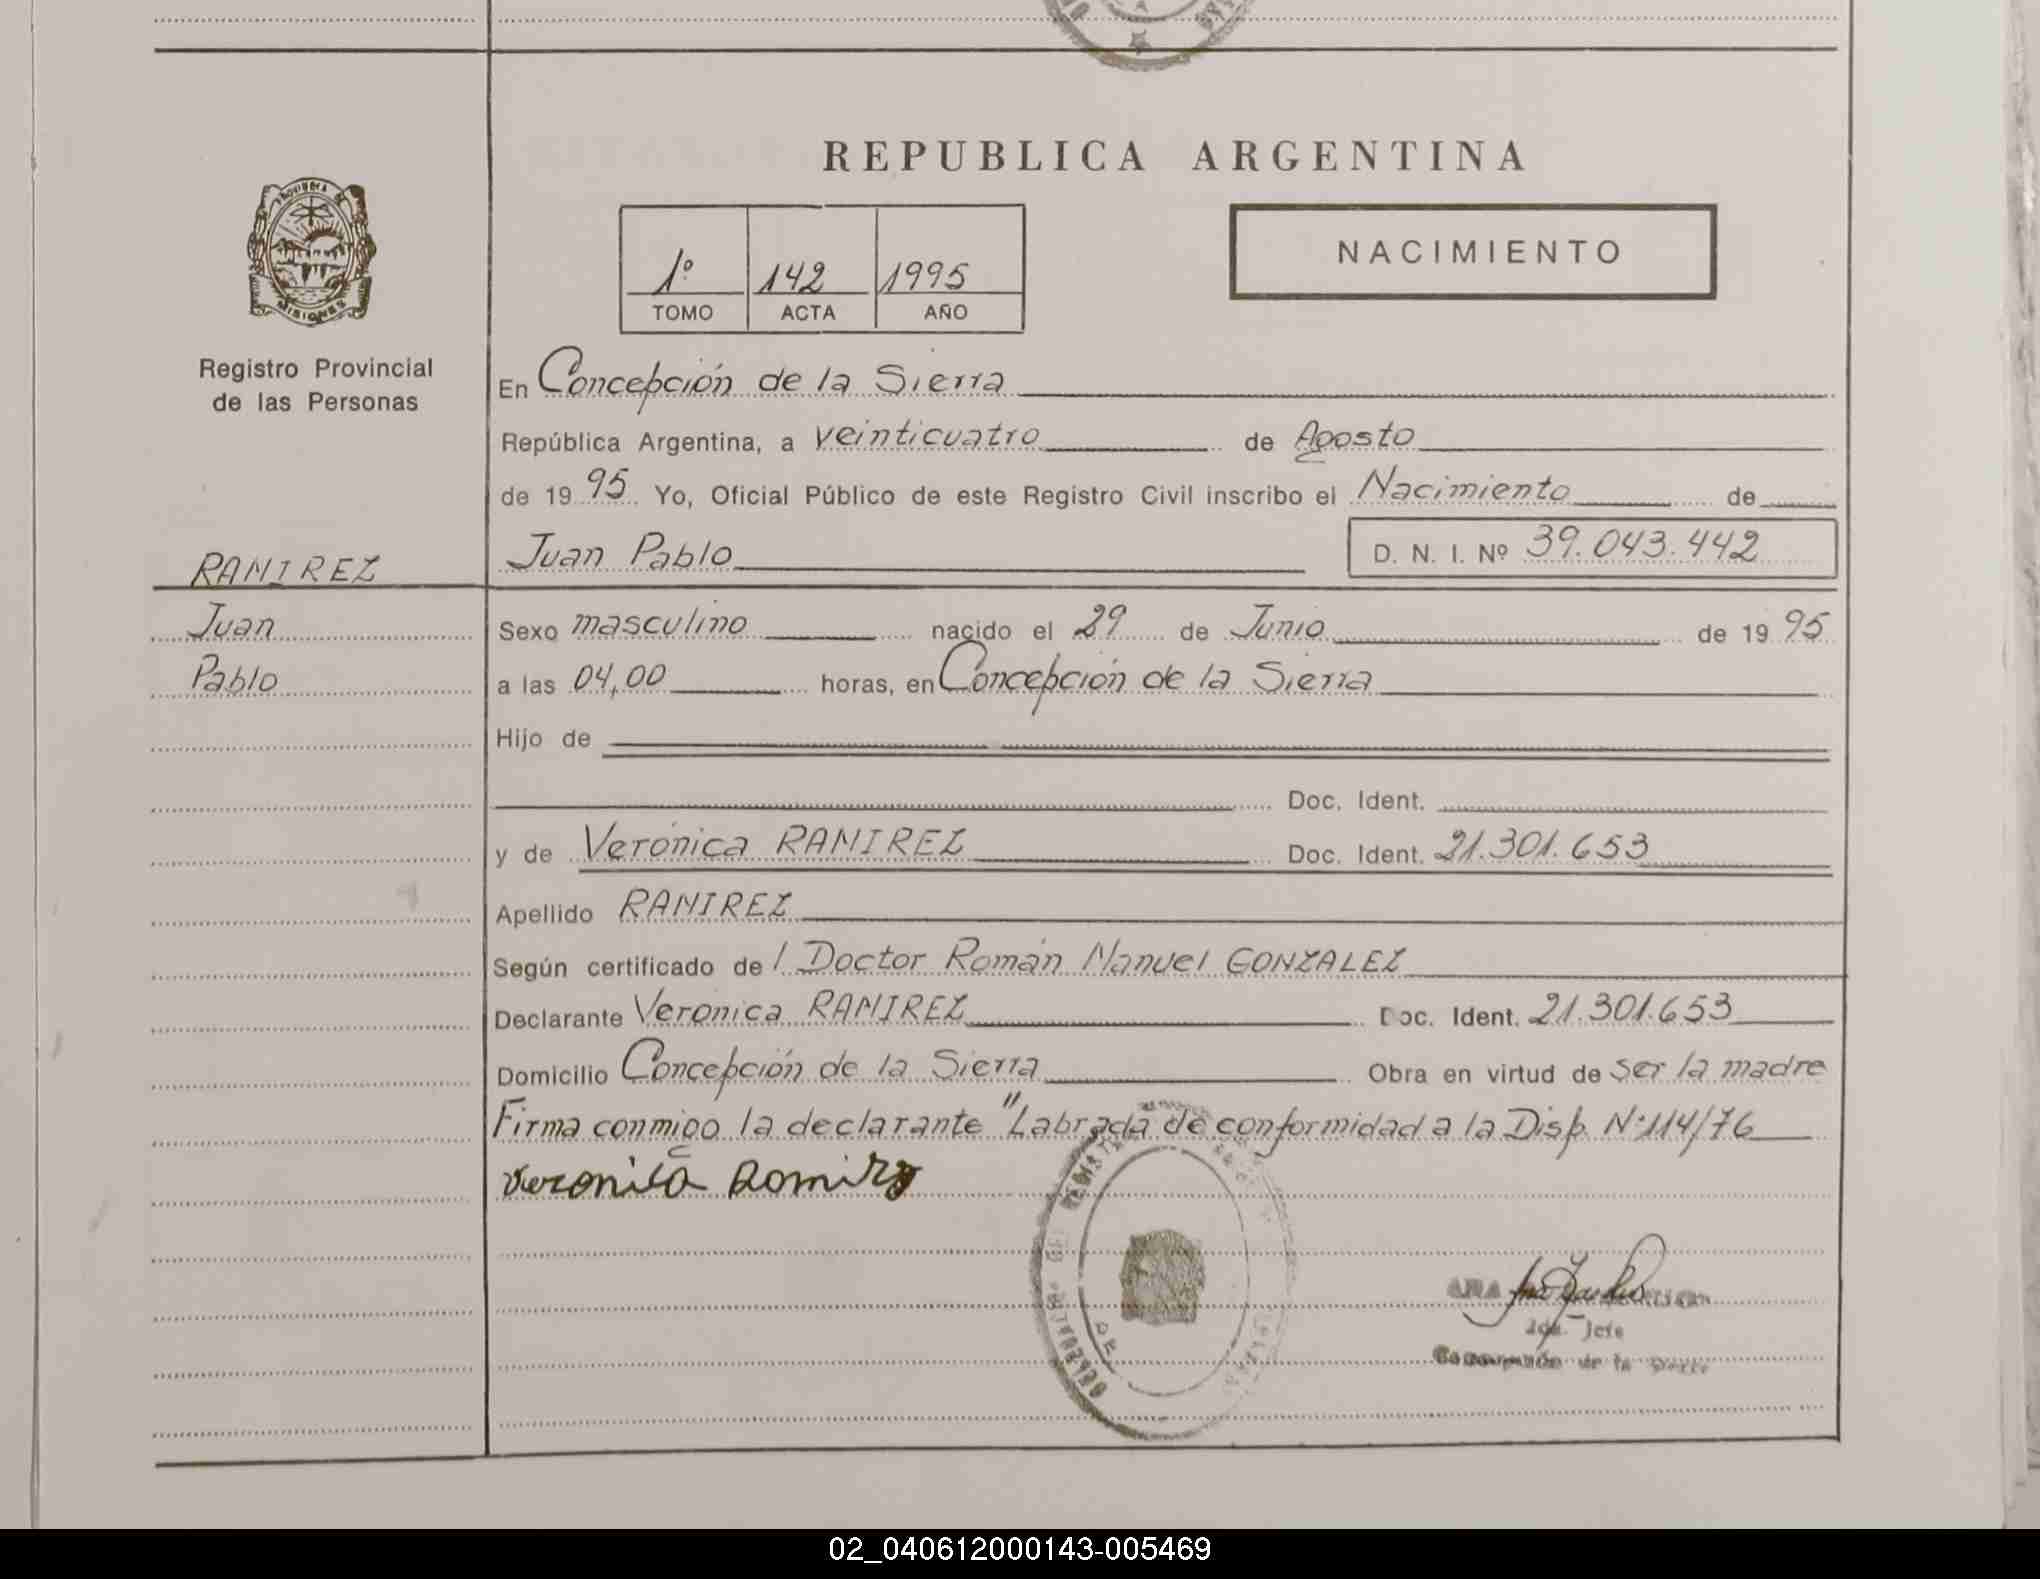 REPUBLICA ARGENTINA
PROVINCIA DE MISIONES
1º 142 1995
TOMO ACTA AÑO
NACIMIENTO
Registro Provincial
de las Personas
En Concepción de la Sierra
República Argentina, a veinticuatro de Agosto
de 1995 Yo, Oficial Público de este Registro Civil inscribo el Nacimiento de
Juan Pablo D. N. I. Nº 39.043.442
RAMIREZ
Juan
Pablo
Sexo masculino nacido el 29 de Junio de 1995
a las 04,00 horas, en Concepción de la Sierra
Hijo de
Doc. Ident.
y de Verónica RAMIREZ Doc. Ident. 21.301.653
Apellido RAMIREZ
Según certificado de l Doctor Román Manuel GONZALEZ
Declarante Verónica RAMIREZ Doc. Ident. 21.301.653
Domicilio Concepción de la Sierra Obra en virtud de ser la madre
Firma conmigo la declarante "Labrada de conformidad a la Disp. Nº 114/76
Veronica Ramirez
ANA
Jefe
de la
02_040612000143-005469